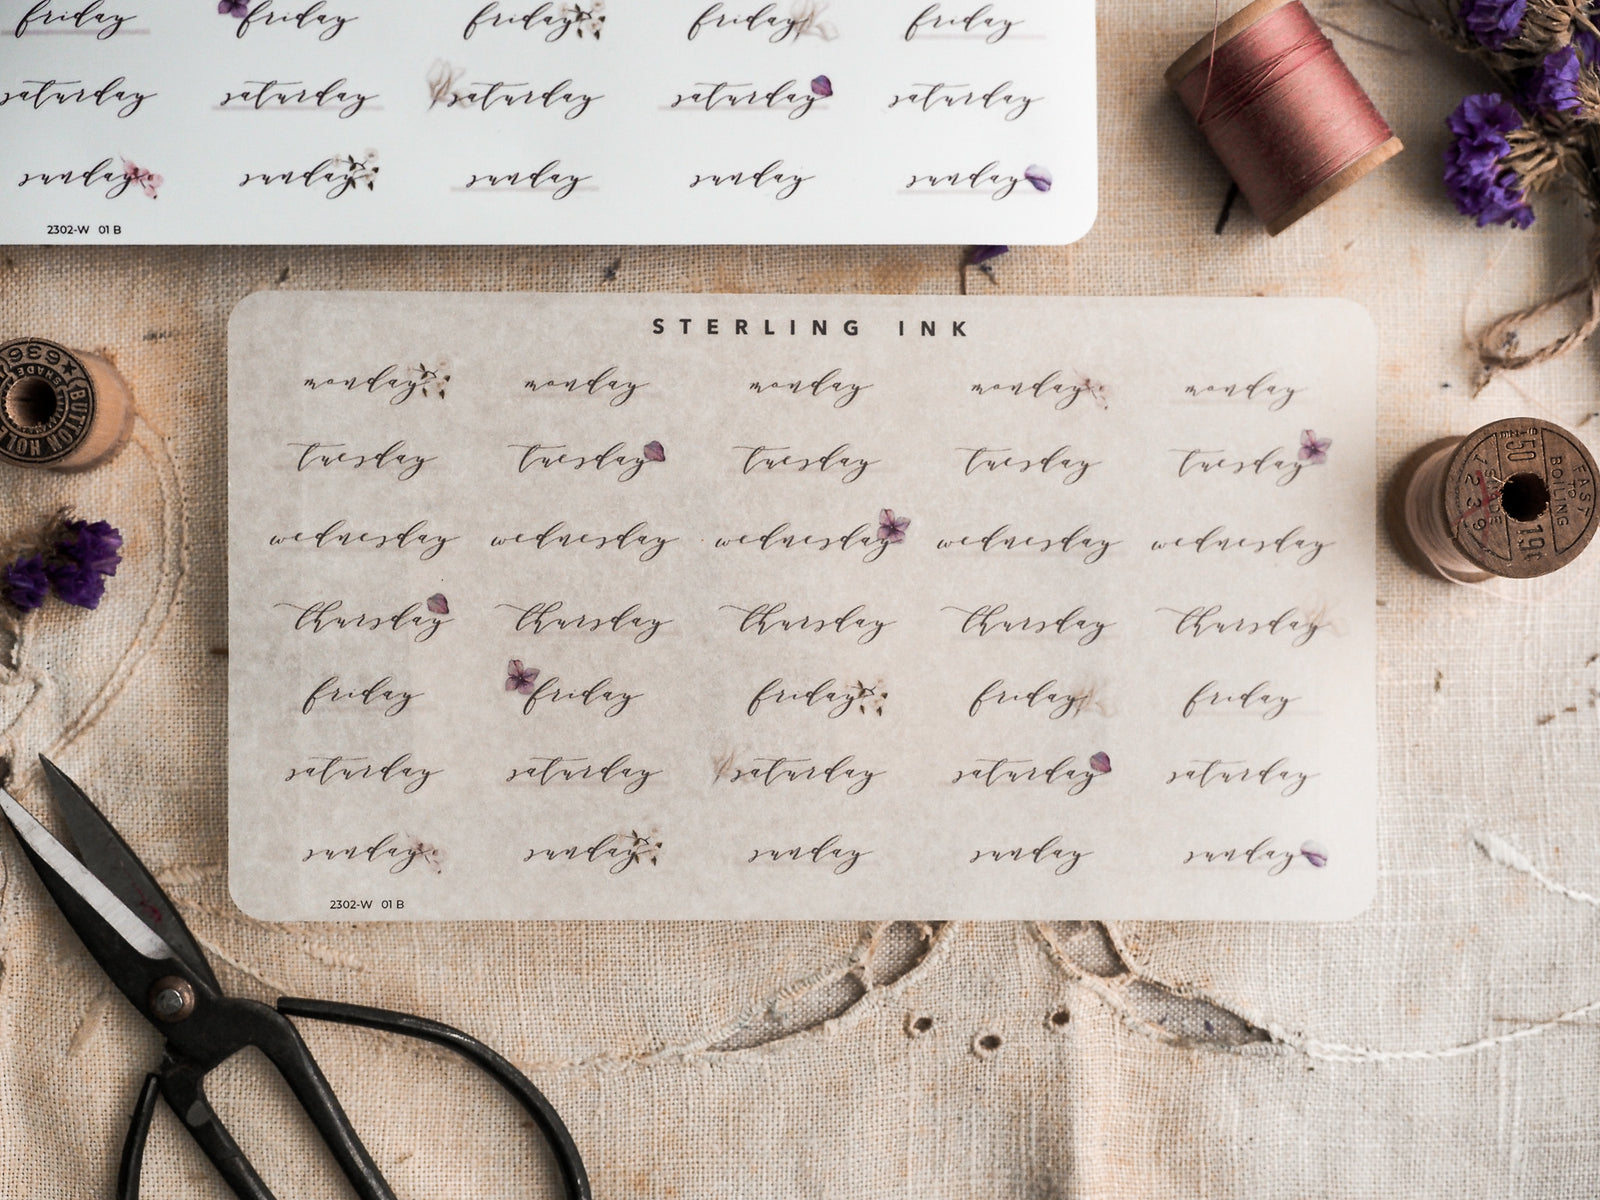 friday friday friday friday friday
saturday saturday saturday saturday saturday
sunday sunday sunday sunday sunday
2302-W 01 B
STERLING INK
monday monday monday monday monday
tuesday tuesday tuesday tuesday tuesday
wednesday wednesday wednesday wednesday wednesday
thursday thursday thursday thursday thursday
friday friday friday friday friday
saturday saturday saturday saturday saturday
sunday sunday sunday sunday sunday
2302-W 01 B
636
SHADE
BUTTON HOLE
50
FAST
TO
BOILING
SHADE
1239